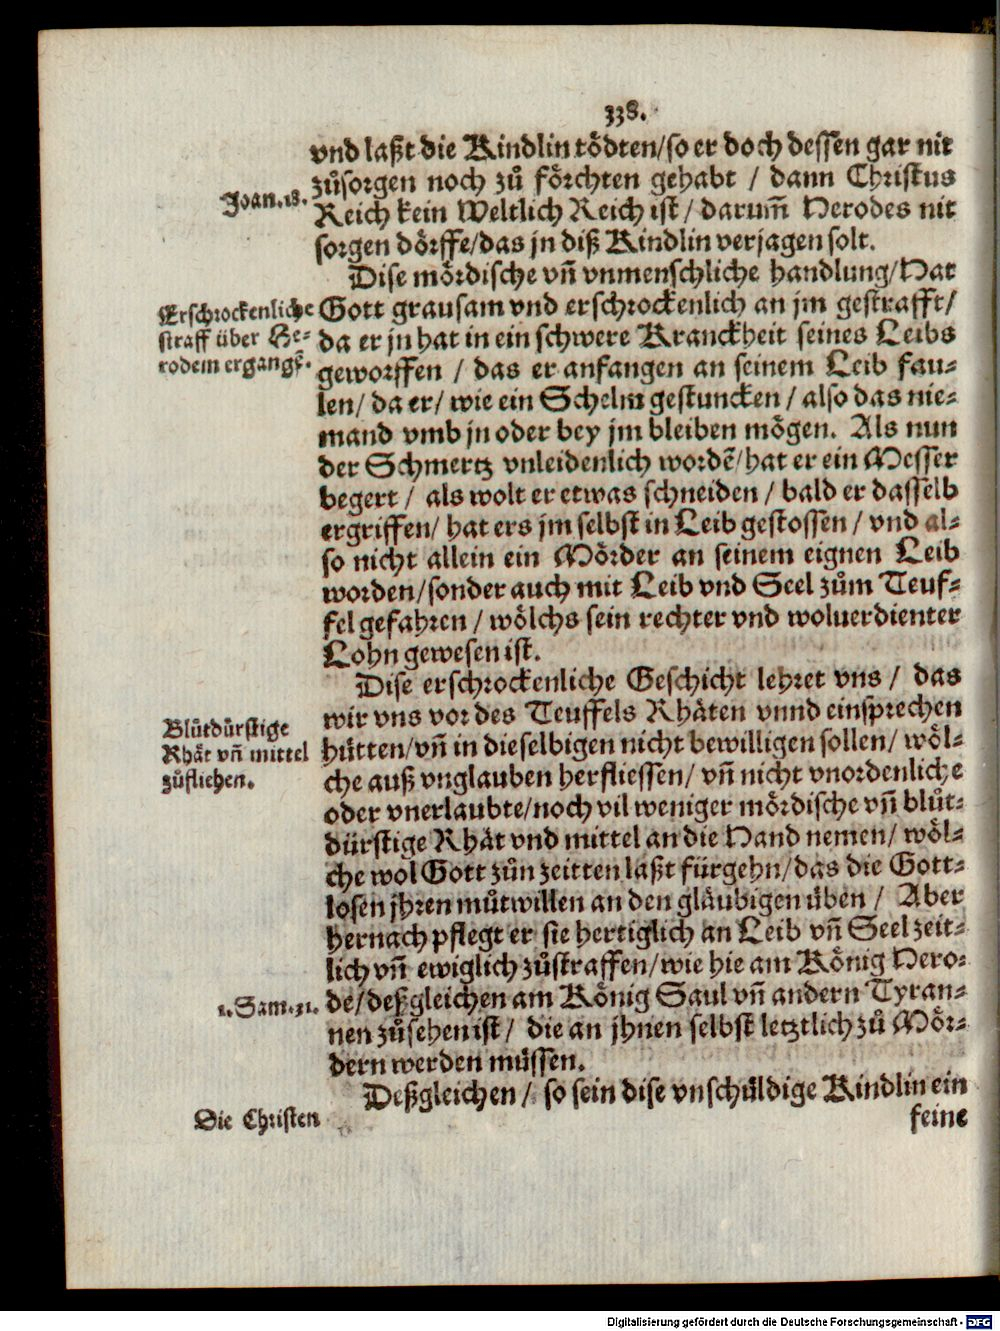 338.
vnd laßt die Kindlin tödten/so er doch dessen gar nit
zůsorgen noch zů förchten gehabt / dann Christus
Joan.18.
Reich kein Weltlich Reich ist/ darum̃ Herodes nit
sorgen dörffe/das jn diß Kindlin verjagen solt.
Dise mördische vñ vnmenschliche handlung/Hat
Erschrockenliche
straff über He-
rodem ergangẽ.
Gott grausam vnd erschrockenlich an jm gestrafft/
da er jn hat in ein schwere Kranckheit seines Leibs
geworffen / das er anfangen an seinem Leib fau-
len/ da er/ wie ein Schelm gestuncken / also das nie-
mand vmb jn oder bey jm bleiben mögen. Als nun
der Schmertz vnleidenlich wordẽ/hat er ein Messer
begert / als wolt er etwas schneiden / bald er dasselb
ergriffen/ hat ers jm selbst in Leib gestossen / vnd al-
so nicht allein ein Mörder an seinem eignen Leib
worden/sonder auch mit Leib vnd Seel zům Teuf-
fel gefahren / wölchs sein rechter vnd woluerdienter
Lohn gewesen ist.
Dise erschrockenliche Geschicht lehret vns / das
wir vns vor des Teuffels Rhäten vnnd einsprechen
Blůtdürstige
Rhät vñ mittel
zůfliehen.
hütten/vñ in dieselbigen nicht bewilligen sollen/ wöl-
che auß vnglauben herfliessen/ vñ nicht vnordenliche
oder vnerlaubte/noch vil weniger mördische vñ blůt-
dürstige Rhät vnd mittel an die Hand nemen/ wöl-
che wol Gott zůn zeitten laßt fürgehn/das die Gott-
losen jhren můtwillen an den gläubigen üben / Aber
hernach pflegt er sie hertiglich an Leib vñ Seel zeit-
lich vñ ewiglich zůstraffen/wie hie am König Hero-
1.Sam.31.
de/deßgleichen am König Saul vñ andern Tyran-
nen zůsehen ist/ die an jhnen selbst letztlich zů Mör-
dern werden müssen.
Deßgleichen / so sein dise vnschůldige Kindlin ein
Die Christen
feine
Digitalisierung gefördert durch die Deutsche Forschungsgemeinschaft - DFG